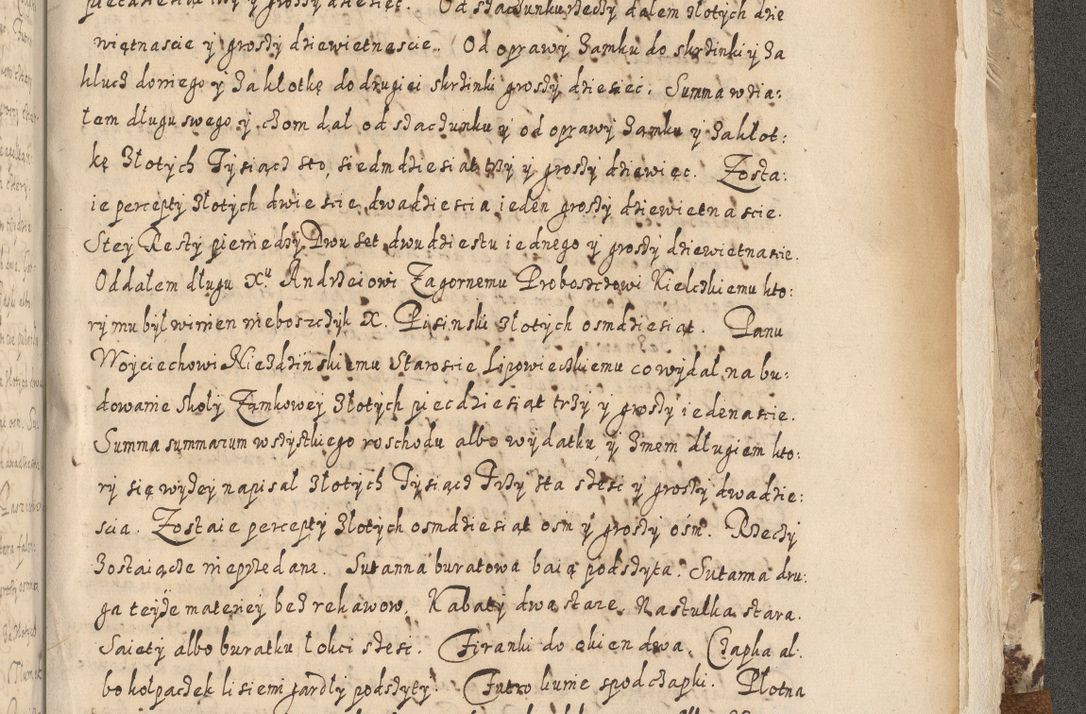 piecdziesiat trzy y groszy dziesięc. Od szacunku rzeczy dalem złotych dzie
więtnascie y groszy dziewietnascie. Od oprawy zamku do skrzinki y za
klucz do niego y za kłotkę do drugiei skrzinki groszy dziesięc. Summa wzia:
łem długu swego y czom dal od szacunku y od oprawy zamku y za kłot:
kę złotych Tysiącz sto, siedmdziesiat trzy y groszy dziewięc. Zosta:
ie percepty złotych dwiescie dwadziescia ieden groszy dziewietnascie.
S tey Resty pieniedzy Dwuset dwudziestu iednego y groszy dziewietnascie.
Oddalem długu X. Andrzeiowi Zagornemu Proboszczowi Kielczkiemu kto:
ry mu był winien nieboszczyk X. Pisinski złotych osmdziesiąt. Panu
Woyciechowi Niezdzinskiemu Staroscie Lipowieczkiemu co wydał na bu:
dowanie Skoły Zamkowey złotych piecdziesiąt trzy y groszy iedenascie.
Summa summarum wszystkiego roschodu albo wydatku, y z niem długiem kto:
ry się wyzey napisal złotych Tysiącz Trzysta szesc y groszy dwadzie:
scia. Zostaie percepty złotych osmdziesiąt osm y groszy ośm. Rzeczy
zostaiącze nieprzedane. Sutanna buratowa baią podszyta. Sutanna dru:
ga teyze materiey bez rekawow, Kabaty dwa stare. Nastułka stara.
Saiety albo buratku łokci szesc. Firanki do okien dwa, Czapka al:
bo kołpaczek lisiemi gardly podszyty. Futro kunie spod czapki. Płotna